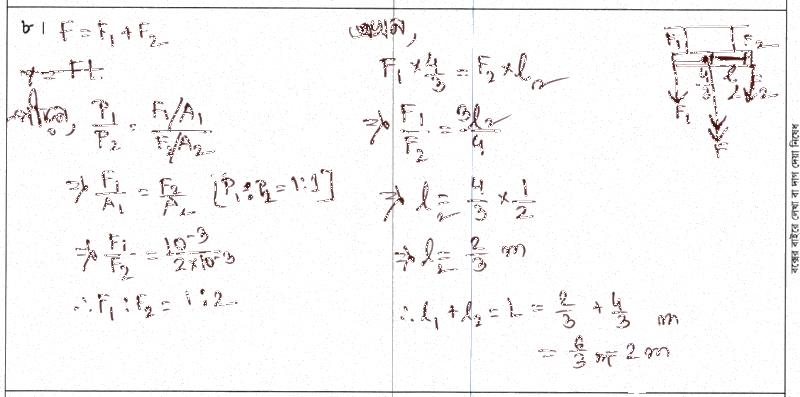 ৮। F = F₁ + F₂
P₁/P₂ = (F₁/A₁)/(F₂/A₂)
⇒ F₁/A₁ = F₂/A₂ [P₁:P₂ = 1:1]
⇒ F₁/F₂ = 10⁻³/2×10⁻³
∴ F₁ : F₂ = 1:2
F₁ × 4/3 = F₂ × l₂
⇒ F₁/F₂ = 3l₂/4
⇒ l₂ = 4/3 × 1/2
⇒ l₂ = 2/3 m
∴ l₁ + l₂ = L = 2/3 + 4/3 m
= 6/3 m = 2 m
F₁
F₂
F₁
F
বক্সের বাইরে লেখা বা দাগ দেয়া নিষেধ